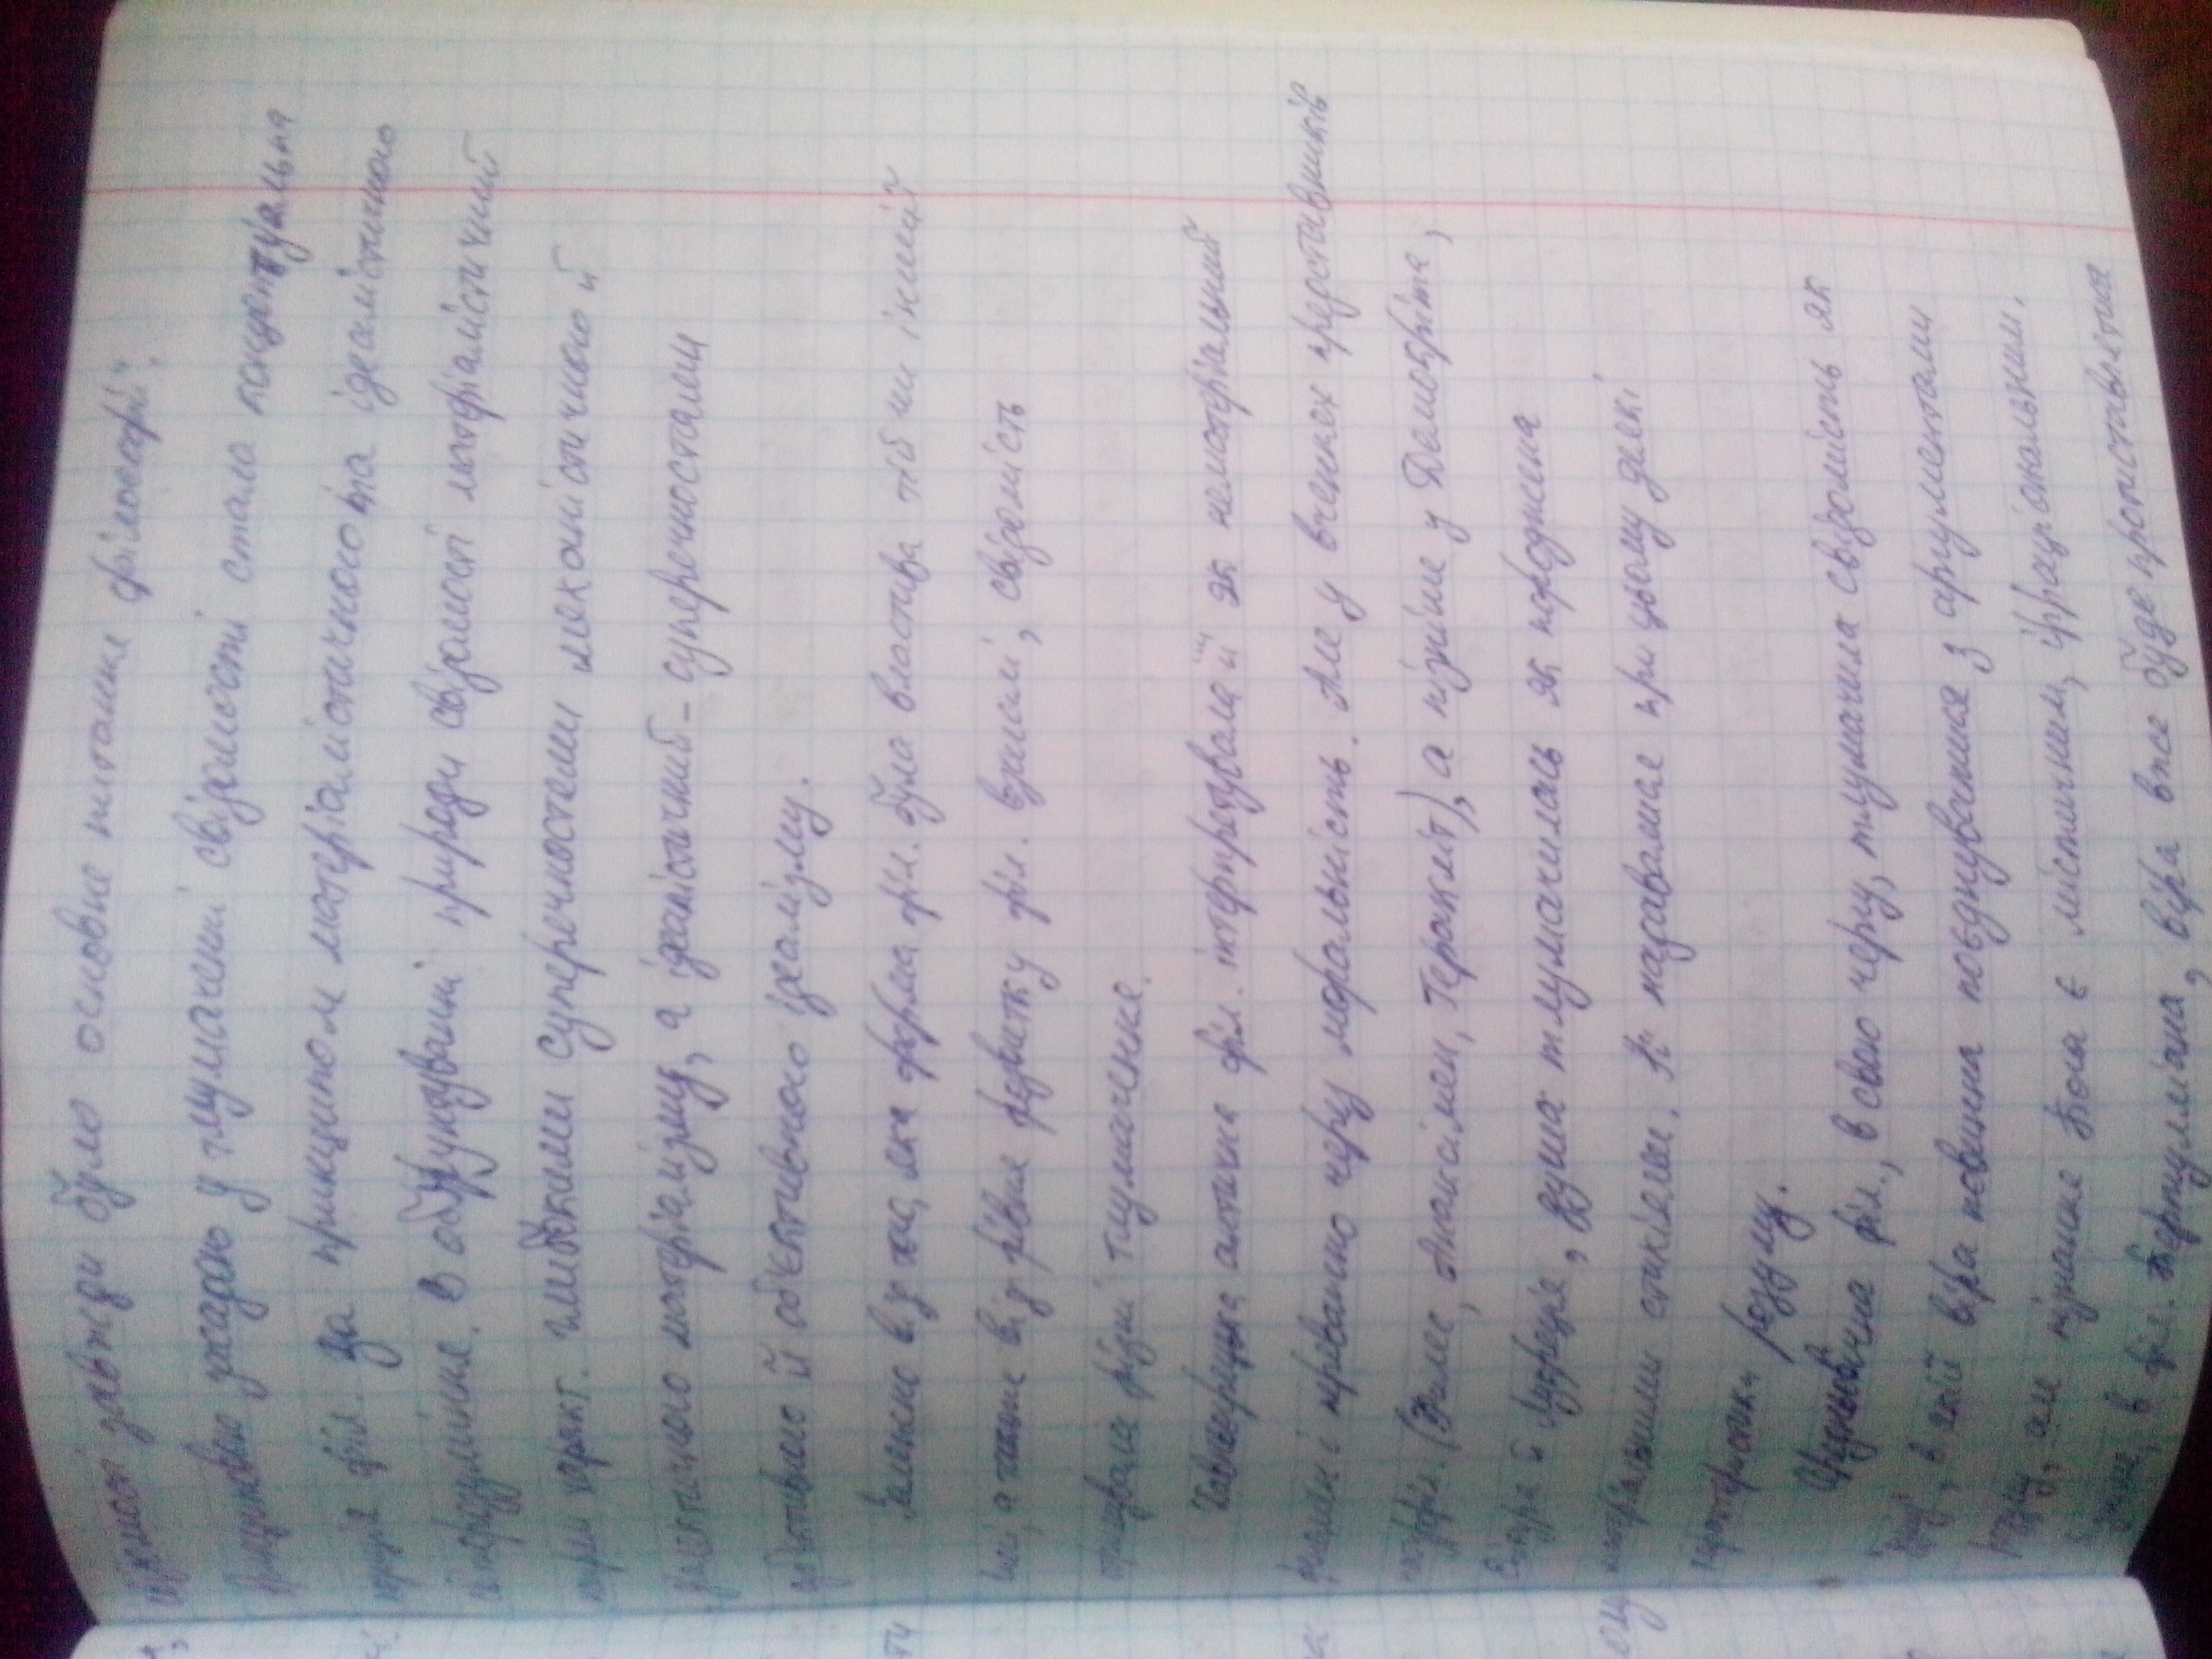 свідомості завжди було основне питання філософії".
Принциповою засадою у тлумаченні свідомості стала концептуальна
позиція філ. за принципом матеріалістичного та ідеалістичного
світорозуміння. В обґрунтуванні природи свідомості матеріалістичний
напрям характ. глибокими суперечностями механістичного й
діалектичного матеріалізму, а ідеалістичний - суперечностями
суб'єктивного й об'єктивного ідеалізму.
Залежно від того, яка форма філ. була властива тій чи іншій
а також від рівня розвитку філ. взагалі, свідомість
отримувала різні тлумачення.
Давньогрецька антична філ. інтерпретувала її як нематеріальний
феномен і переважно через моральність. Але у вченнях представників
натурфіл. (Фалес, Анаксімен, Геракліт), а пізніше у Демокріта,
Епікура й Лукреція, душа тлумачилась як породжена
матеріальними стихіями. Їй надавалися при цьому деякі
характеристики розуму.
Середньовічна філ., в свою чергу, тлумачила свідомість як
в якій віра повинна поєднуватися з аргументами
розуму, але пізнання Бога є містичним, ірраціональним.
в філ. Тертулліана, віра вже буде протиставлятися